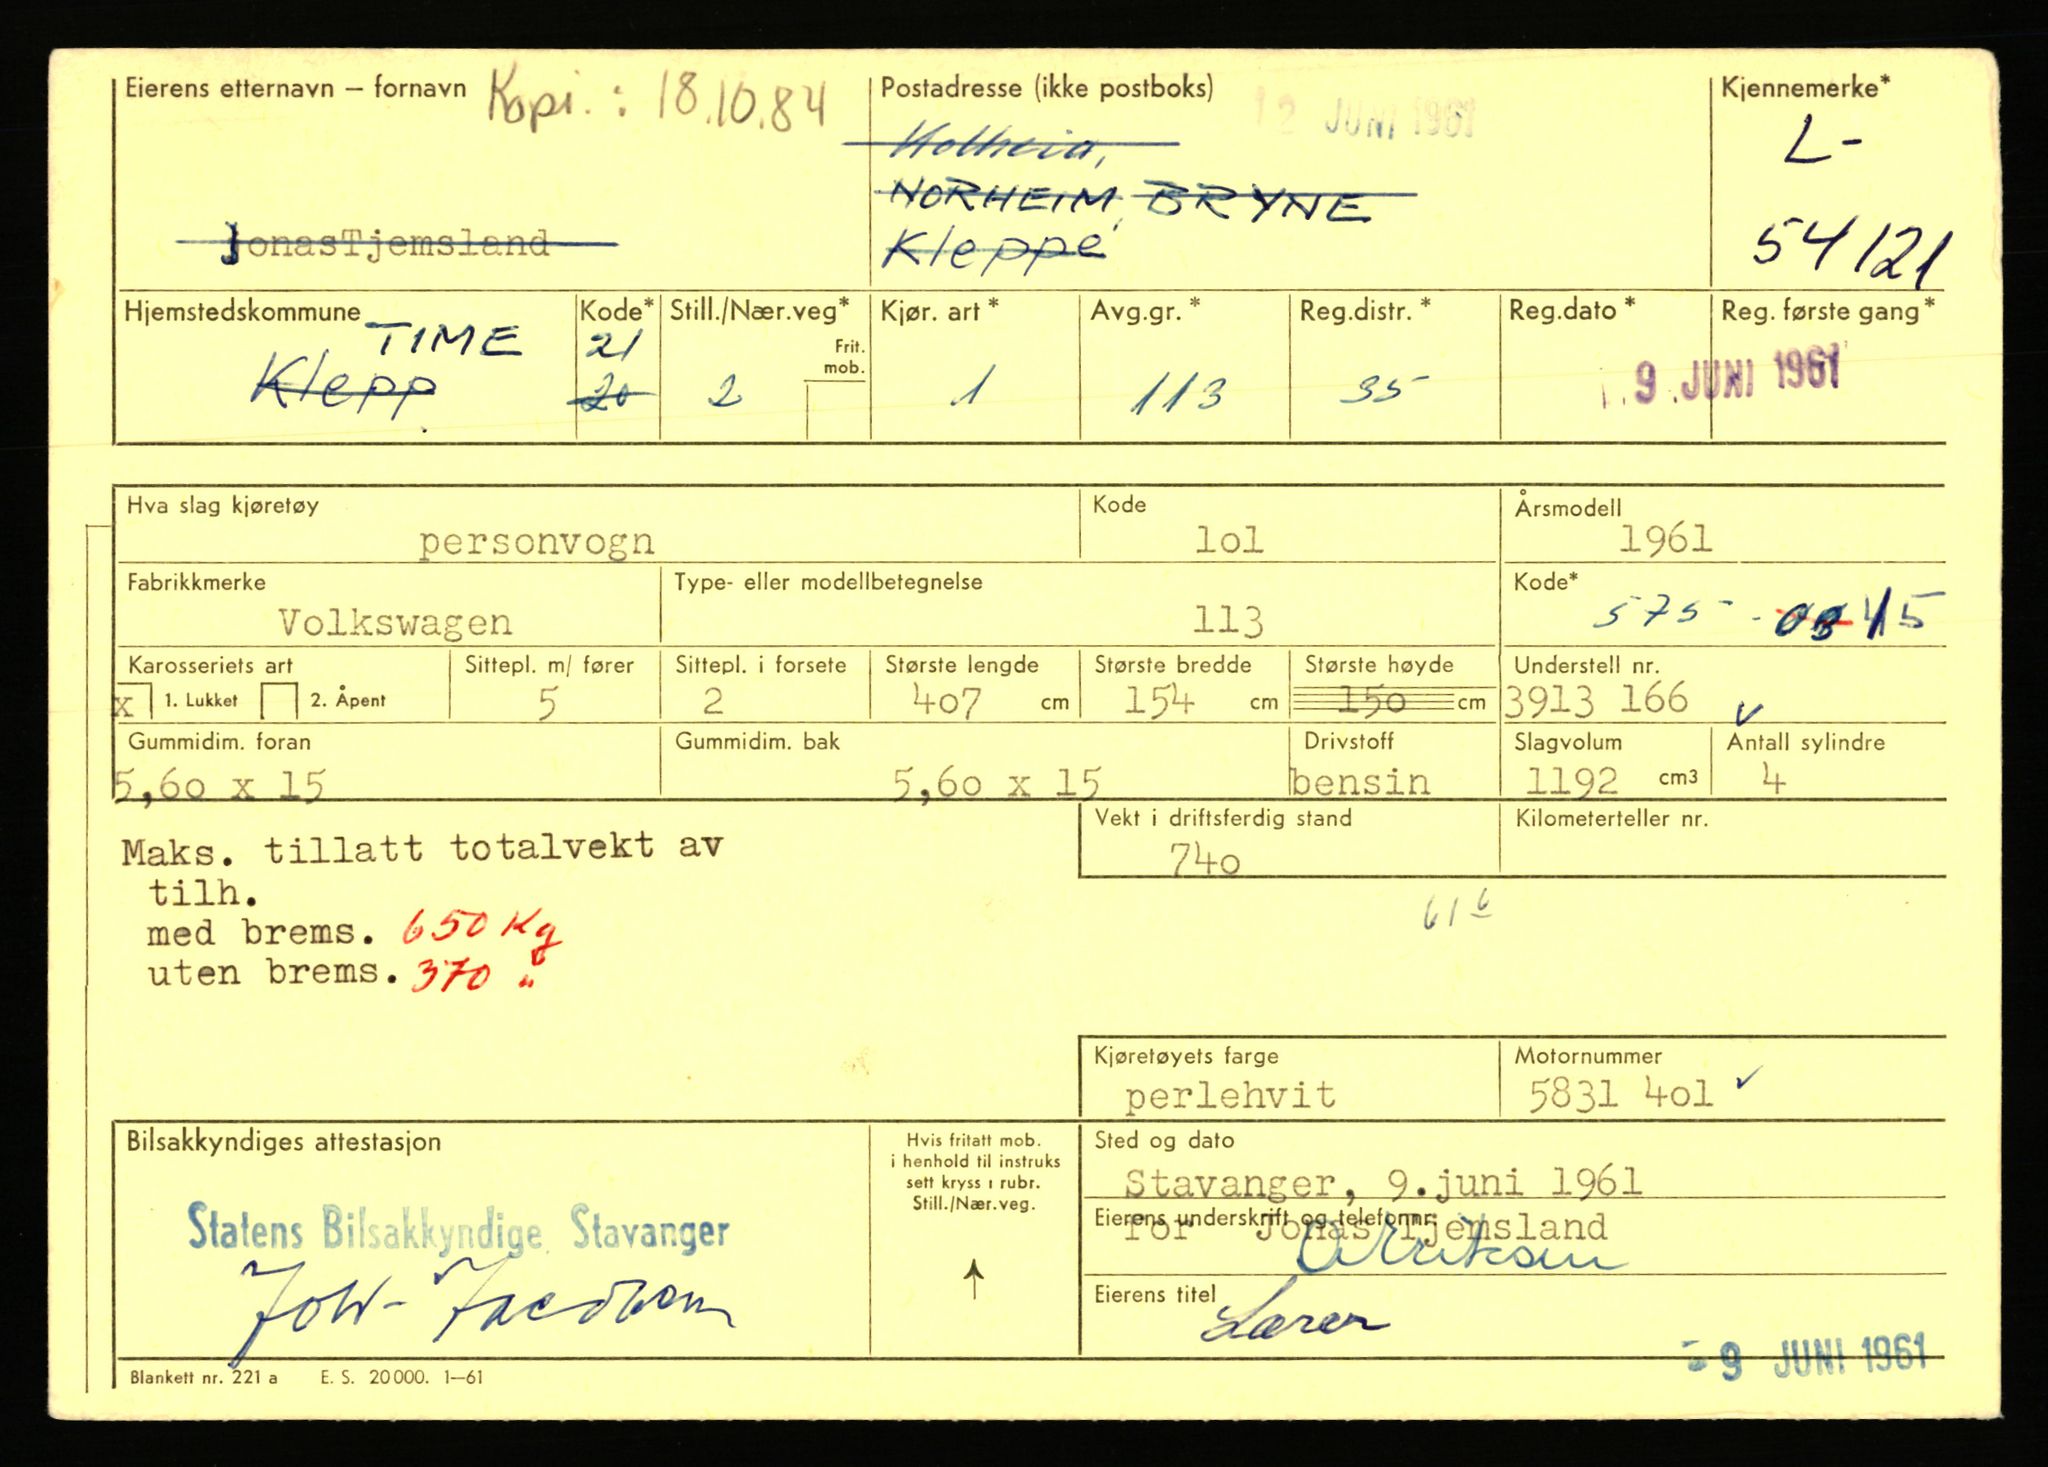 Eierens etternavn – fornavn Kopi. : 18.10.84
JonasTjemsland
Postadresse (ikke postboks)
12 JUNI 1961
NORHEIM, BRYNE
Kleppe
Kjennemerke*
L-
54121
Hjemstedskommune
TIME
Klepp
Kode*
21
20
Still./Nær.veg*
Frit.
mob.
2
Kjør. art*
1
Avg.gr.*
113
Reg.distr.*
35
Reg.dato*
Reg. første gang*
9. JUNI 1961
Hva slag kjøretøy
personvogn
Kode
lol
Årsmodell
1961
Fabrikkmerke
Volkswagen
Type- eller modellbetegnelse
113
Kode*
575-
Karosseriets art
x 1. Lukket 2. Åpent
Sittepl. m/ fører
5
Sittepl. i forsete
2
Største lengde
407 cm
Største bredde
154 cm
Største høyde
150 cm
Understell nr.
3913 166
Gummidim. foran
5,60 x 15
Gummidim. bak
5,60 x 15
Drivstoff
bensin
Slagvolum
1192 cm3
Antall sylindre
4
Vekt i driftsferdig stand
740
Kilometerteller nr.
Maks. tillatt totalvekt av
tilh.
med brems. 650 Kg
uten brems. 370 "
61 6
Kjøretøyets farge
perlehvit
Motornummer
5831 401
Bilsakkyndiges attestasjon
Statens Bilsakkyndige, Stavanger
Hvis fritatt mob.
i henhold til instruks
sett kryss i rubr.
Still./Nær.veg.
Sted og dato
Stavanger, 9.juni 1961
Eierens underskrift og telefonnr.
for Jonas Tjemsland
Eierens titel
Lærer
-9 JUNI 1961
Blankett nr. 221 a E. S. 20000. 1—61